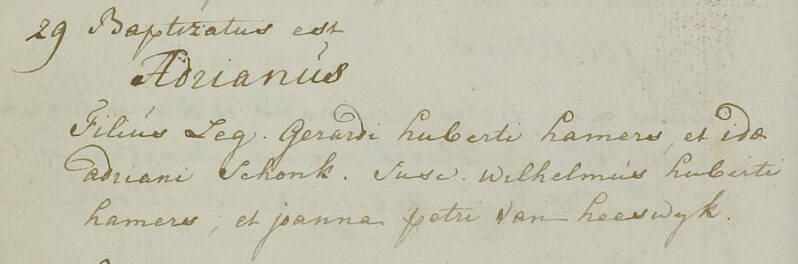 29 Baptizatus est
Adrianús
Filiús Leg. Gerardi huberti hamers, et idæ
adriani Schonk. Susc. Wilhelmús huberti
hamers, et joanna petri van heeswyk.